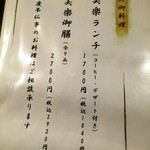 御料理
美楽ランチ（コーヒー・デザート付き）
1700円（税込1840円
美楽御膳（全9品）
2700円（税込2920円
慶弔仏事のお料理はご相談承ります